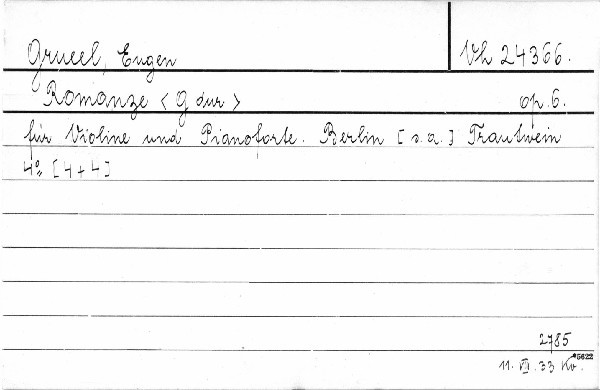 Grueel, Eugen Vh 24366.
Romanze < G dur > op. 6.
für Violine und Pianoforte. Berlin [s. a.] Trautwein
4° [4+4]
2785
*5622
11. VII. 33 Kv.